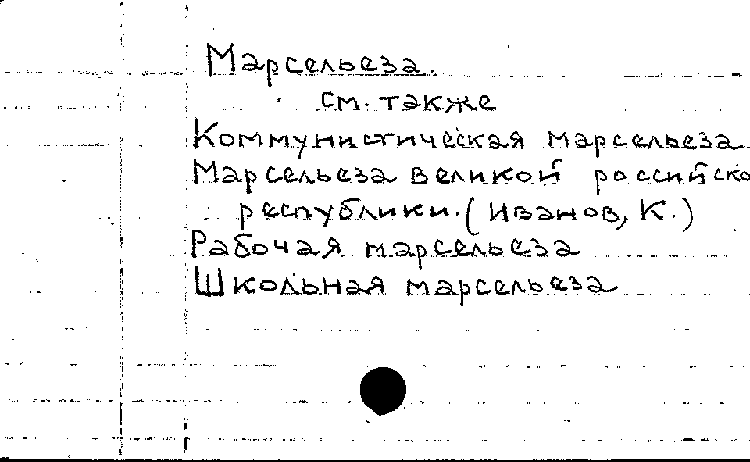 Марсельеза.
см. также
Коммунистическая марсельеза
Марсельеза великой российско
республики. (Иванов, К.)
Рабочая марсельеза
Школьная марсельеза